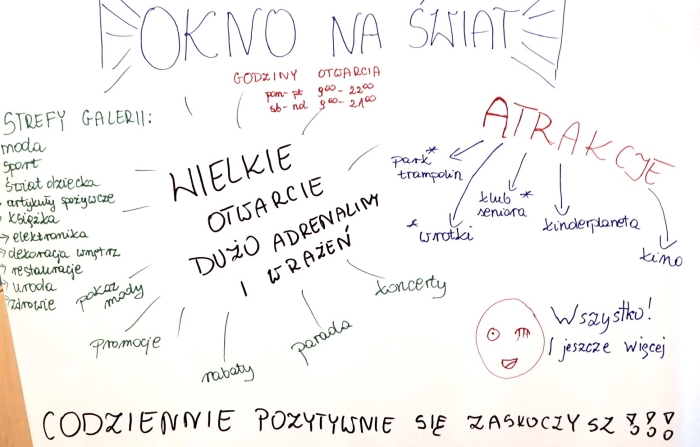 OKNO NA ŚWIAT
GODZINY OTWARCIA
pon- pt 9⁰⁰- 22⁰⁰
sb- nd 9⁰⁰- 21⁰⁰
STREFY GALERII:
moda
sport
świat dziecka
artykuły spożywcze
książka
elektronika
dekoracja wnętrz
restauracje
uroda
zdrowie
WIELKIE
OTWARCIE
DUŻO ADRENALINY
I WRAŻEŃ
pokaz
mody
promocje
rabaty
parada
koncerty
ATRAKCJE
park*
trampolin
*wrotki
klub*
seniora
kinderplaneta
kino
Wszystko!
I jeszcze więcej
CODZIENNIE POZYTYWNIE SIĘ ZASKOCZYSZ !!!